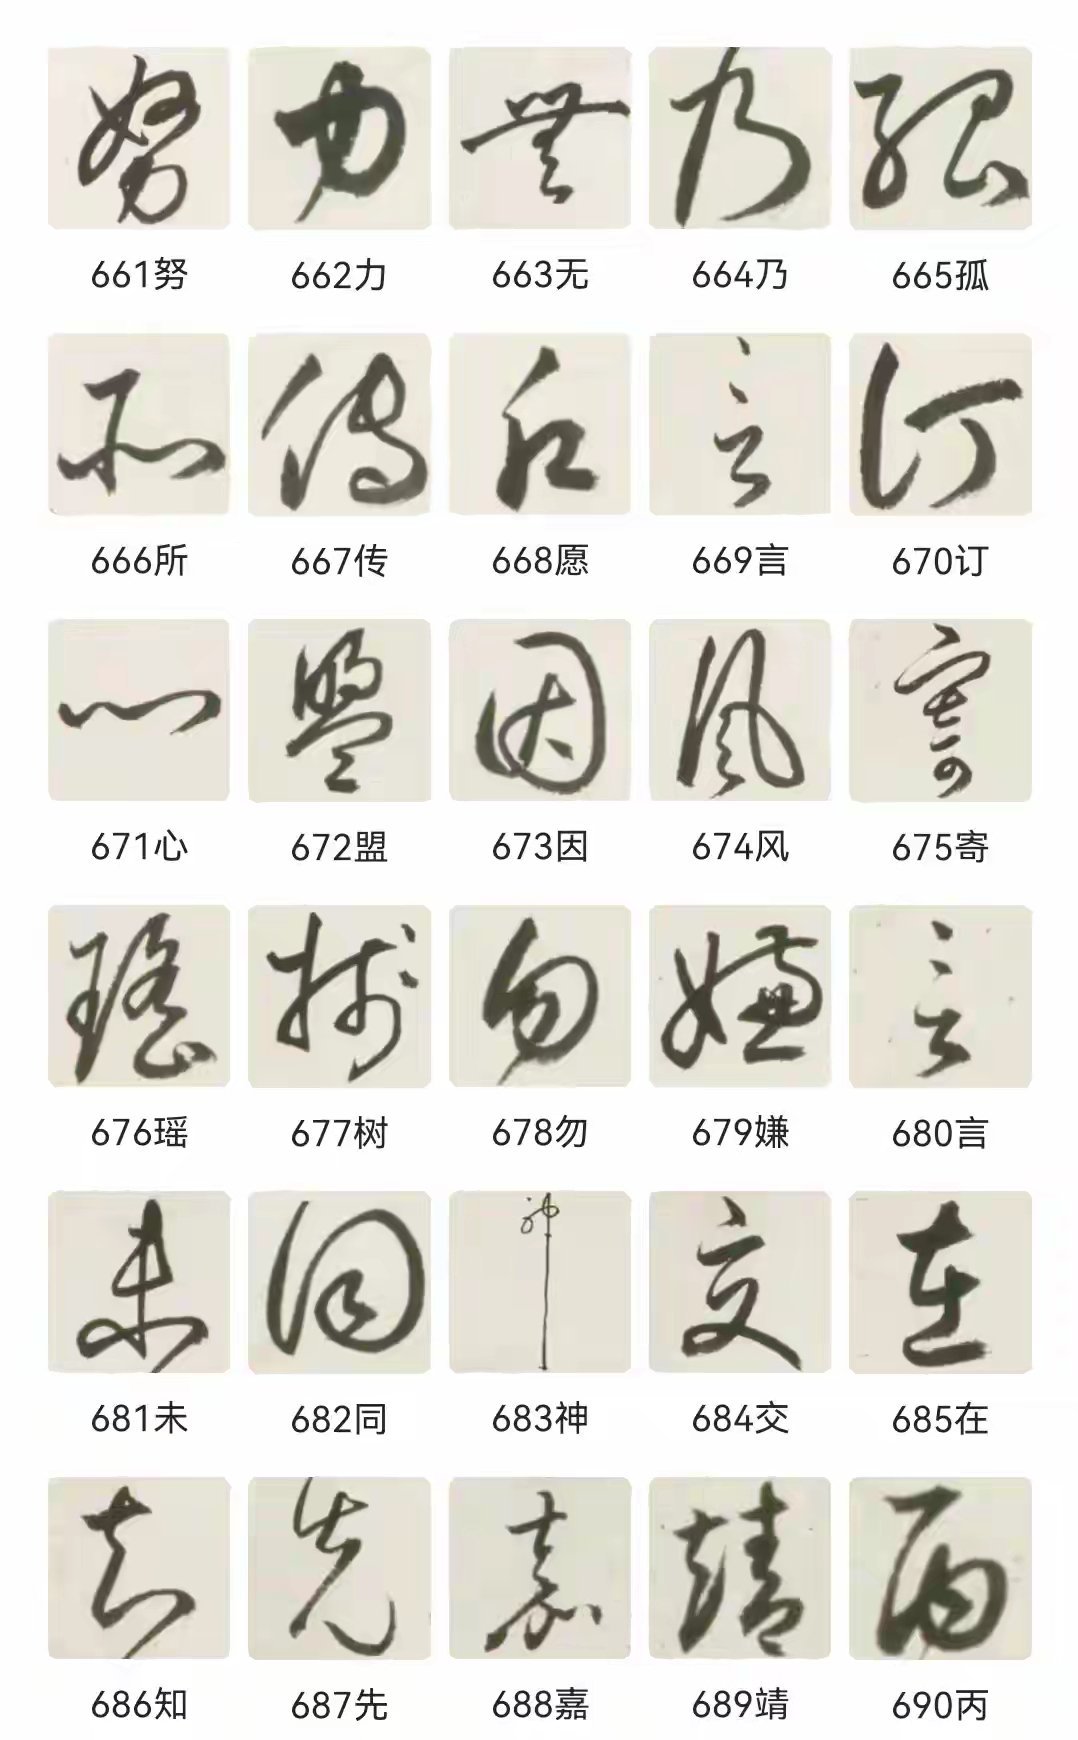 努 力 無 乃 孤
661努 662力 663无 664乃 665孤
所 傳 愿 言 訂
666所 667传 668愿 669言 670订
心 盟 因 風 寄
671心 672盟 673因 674风 675寄
瑤 樹 勿 嫌 言
676瑶 677树 678勿 679嫌 680言
未 同 神 交 在
681未 682同 683神 684交 685在
知 先 嘉 靖 丙
686知 687先 688嘉 689靖 690丙